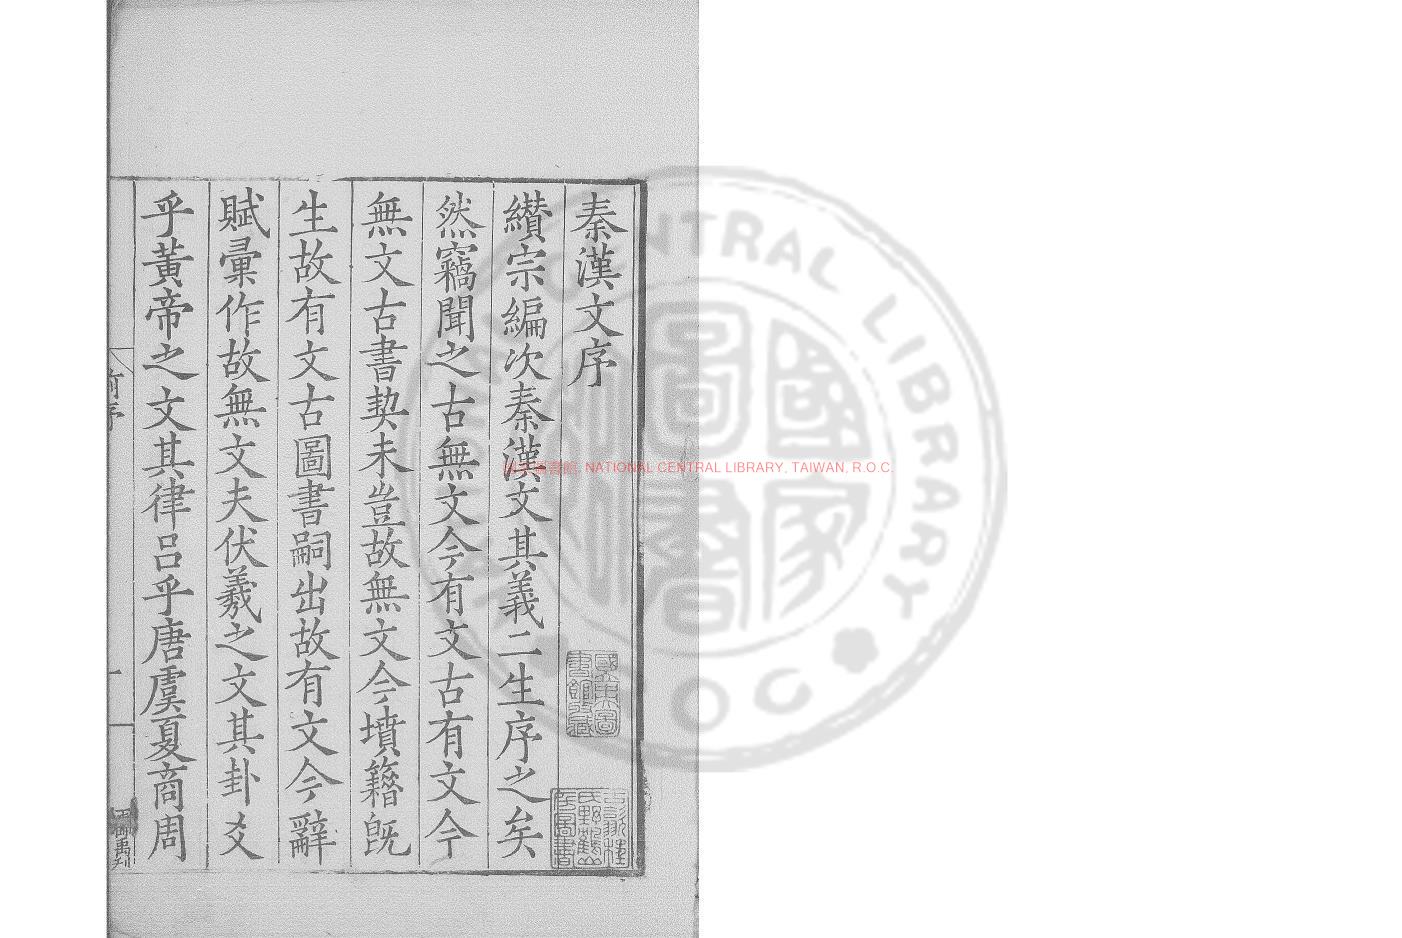 秦漢文序
纘宗編次秦漢文其義二生序之矣
然竊聞之古無文今有文古有文今
無文古書契未豈故無文今墳籍旣
生故有文古圖書嗣出故有文今辭
賦彙作故無文夫伏羲之文其卦爻
乎黃帝之文其律呂乎唐虞夏商周
國家圖書館, NATIONAL CENTRAL LIBRARY, TAIWAN, R.O.C.
國家圖書
CENTRAL LIBRARY